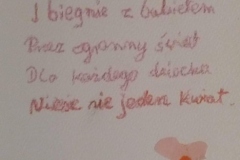 I biegnie z bukietem
Przez ogromny świat
Dla każdego dziecka
Niesie nie jeden kwiat.